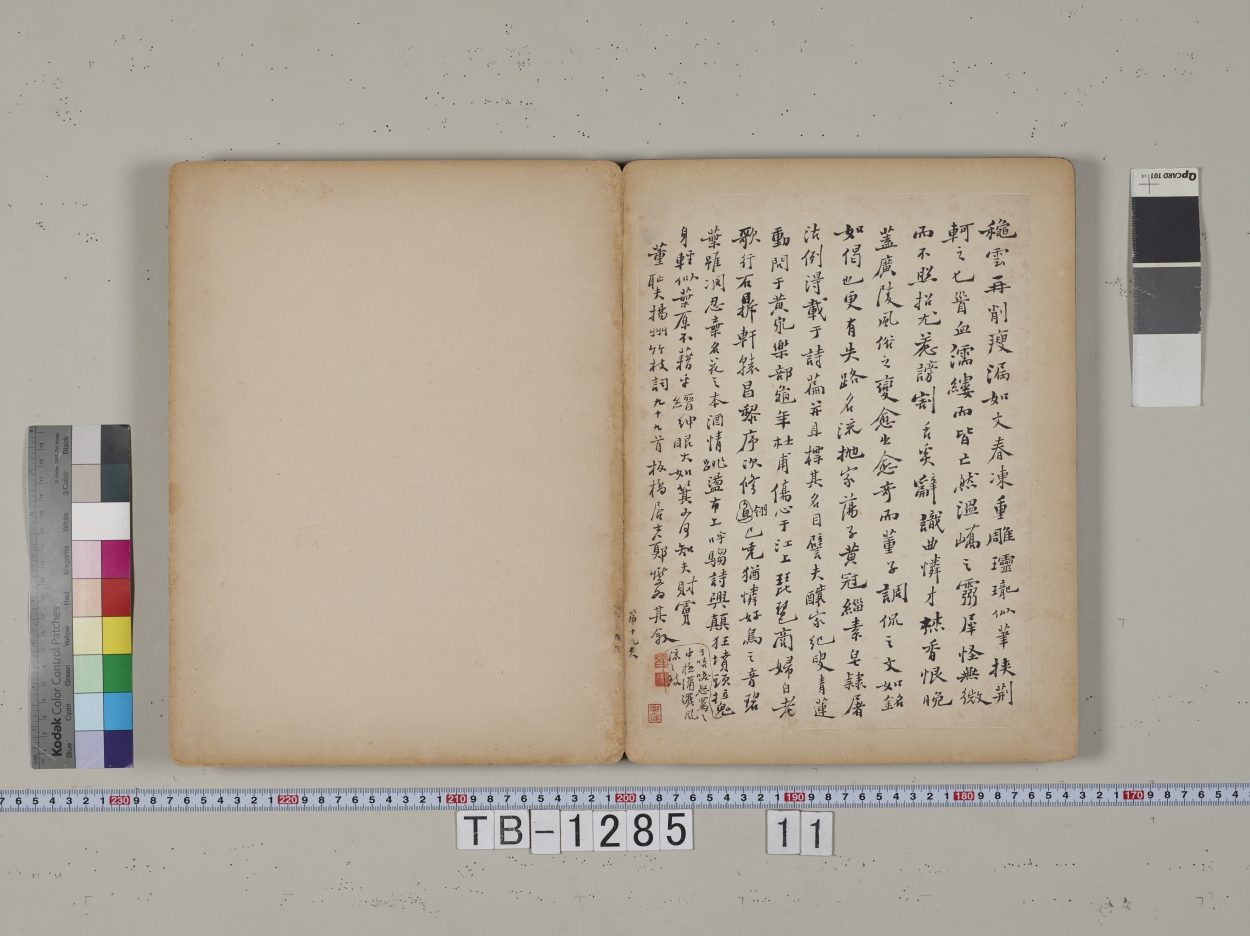 龝雲再削瘦漏如文春凍重雕瓏似筆挾荊
軻之匕首血濡縷而皆亡然溫嶠之靈犀怪無微
而不照招尤惹謗割舌奚辭識曲憐才焚香恨晚
蓋廣陵風俗之變愈出愈奇而董子調侃之文如銘
如偈也更有失路名流抛家蕩子黃冠緇素皂隸屠
沽例得載于詩篇並且標其名目譬夫釀家紀叟青蓮
動問于黃泉樂部龜年杜甫傷心于江上琵琶商婦白老
歌行石鼎軒轅昌黎序次修翎已禿猶憐好鳥之音碧
葉雖凋忍棄名花之本酒情跳盪市上呼騶詩興顛狂墳頭拉鬼
于嘻笑怒罵之
中極瀟灑風
流之致
身輕似葉原不藉乎縉紳眼大如箕又何知夫財虜
董耻夫揚州竹枝詞九十九首 板橋居士鄭燮為其敘
第十九頁
Kodak Color Control Patches
Blue Cyan Green Yellow Red Magenta White 3/Color Black
QPCARD 101
TB-1285 11